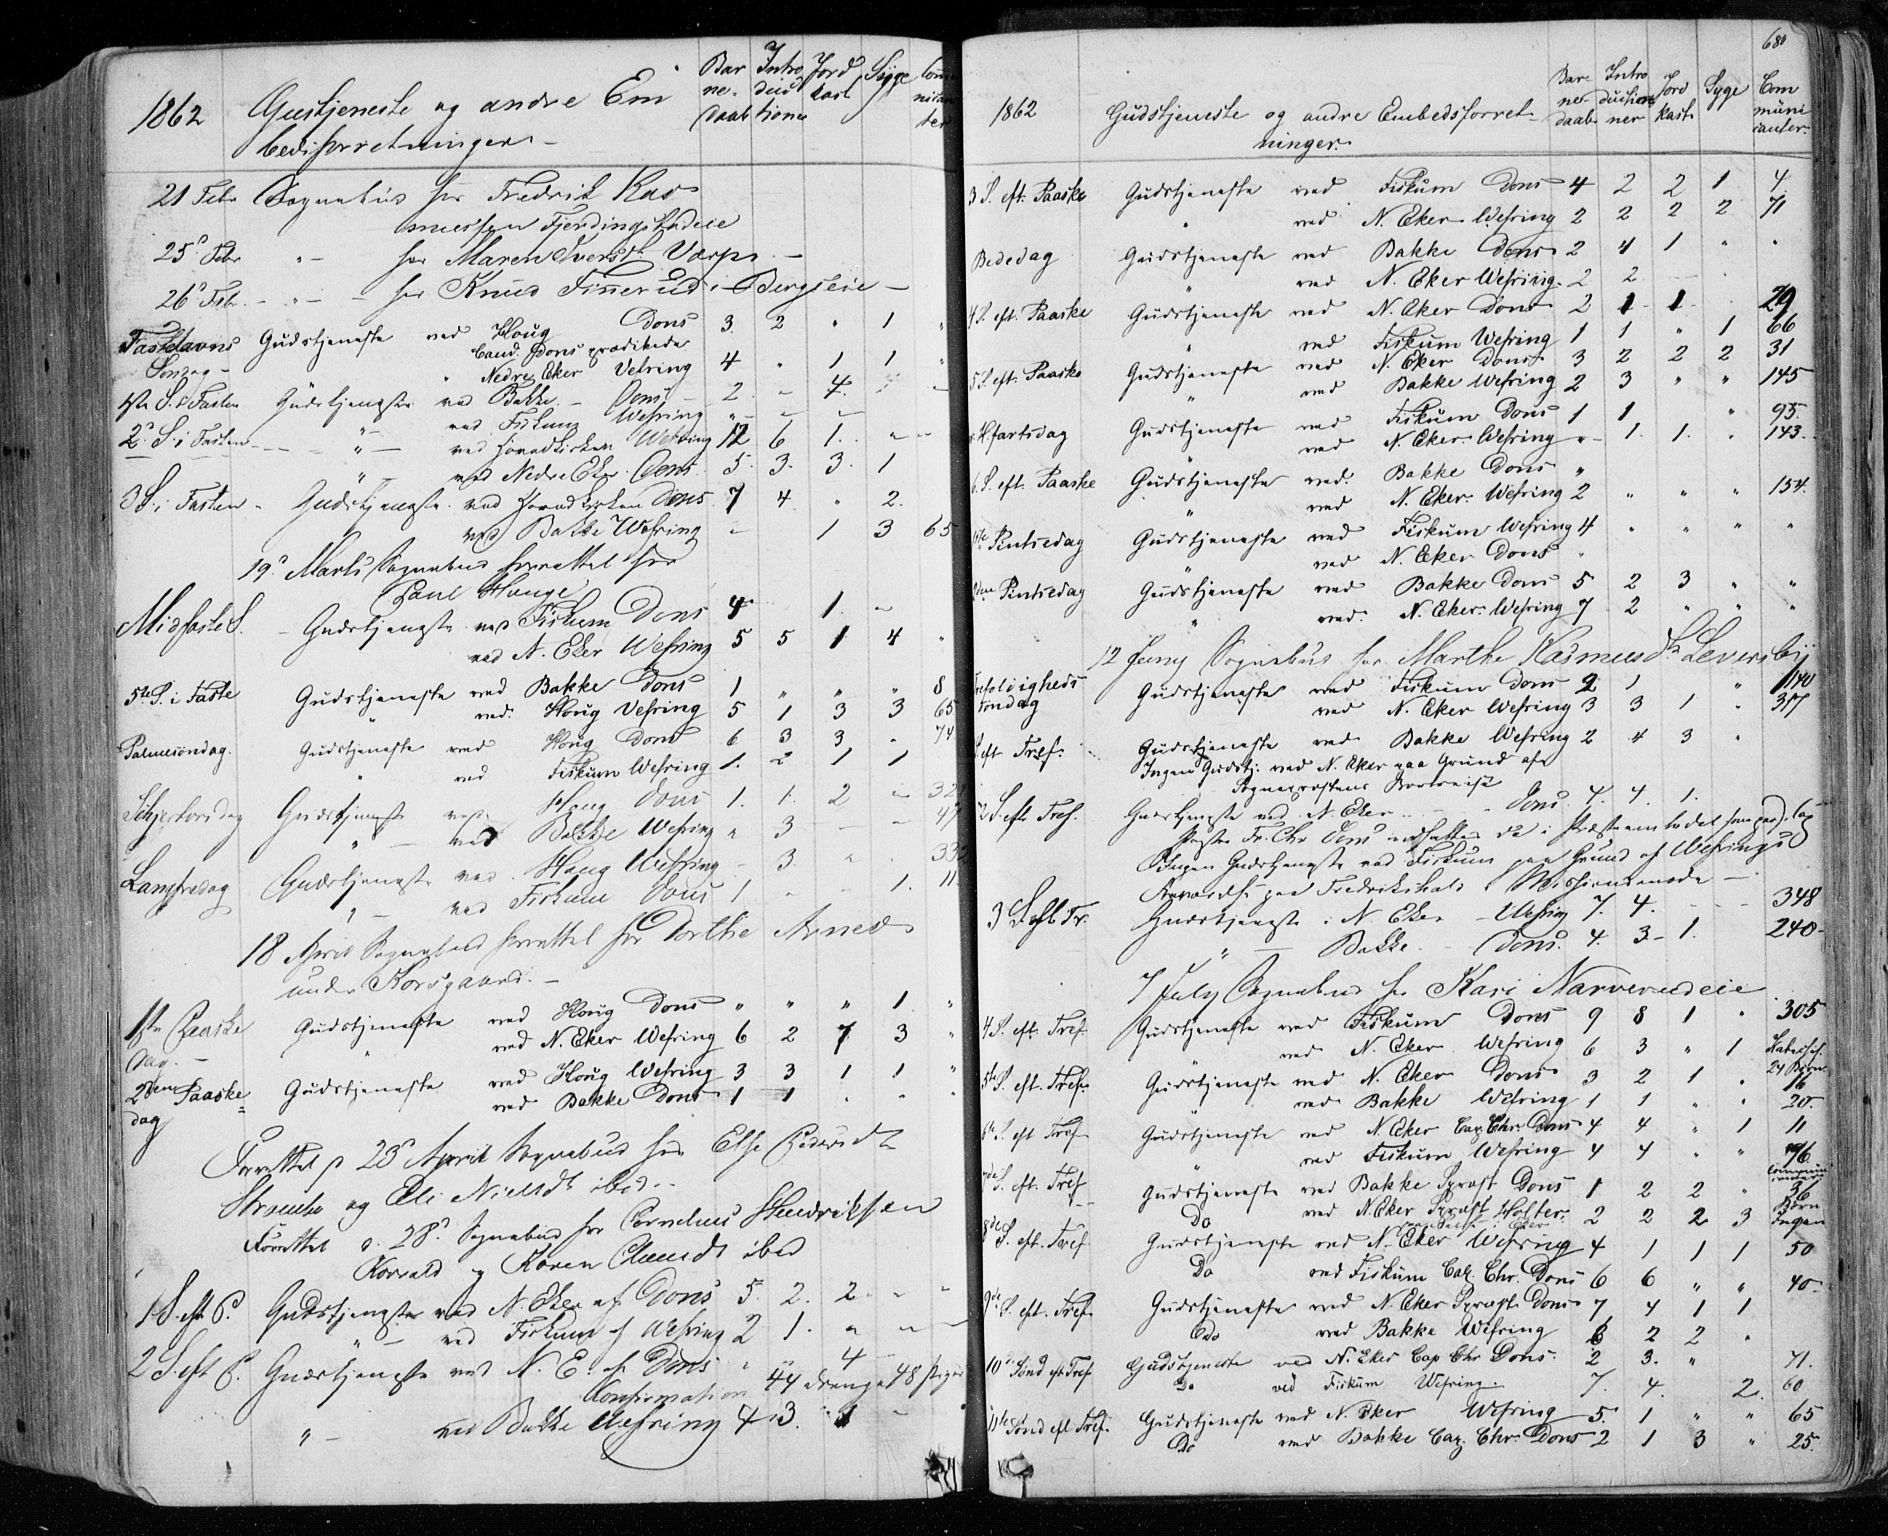 1862 Gudstjeneste og andre Em Bar Intro Jord Syge Comu
bedsforretninger ne- duc kast nican
daab tioner ter
21 Febr Sognebud hos Fredrik Ras
mussen Fjerdingstadeie
25de Febr " - hos Maren Iversdt. Varps -
26d Feb. - " - - hos Knud Finnerud i Bergseie -
Fastelavns Gudstjeneste ved Houg Dons 3. 2 " 1 "
Søndag - Cand. Dons prædikede
" Nedre Eker Vefring 4 " 1 1 "
1ste S. i Fasten Gudstjeneste ved Bakke - Dons - 2 - 4.
" - ved Fiskum Wefring " - -
2d S. i Fasten - " - ved Hovedkirken Wefring 12 6 1. " -
" ved Nedre Eker Dons 5. 3. 3. 1
3 S. i Fasten - Gudstjeneste ved Hovedkirken Dons. 7 4. " 2.
ved Bakke Wefring - 1 3 65
19d Marts Sognebud forrettet hos
Paul Houge
Midfaste S. - Gudstjeneste ved Fiskum Dons 4 1. "
ved N. Eker Wefring 5 5 1 4 "
5te S. i Faste Gudstjeneste ved Bakke Dons 1 " " " 8
" ved Houg Vefring 5 1 3 3 65
Palmesøndag. Gudstjeneste ved Houg Dons 6 3 3 " 74
" ved Fiskum Wefring 1. 2 1 1
Skjertorsdag Gudstjeneste ved Houg Dons 1. 1. 2 - 32
" - ved Bakke Wefring " 3 - - 47
Langfredag Gudstjeneste ved Houg Wefring - 3. " 33
" - ved Fiskum Dons 1 - - 1. 11.
18 April Sognebud forrettet hos Dorthe Arnesd
under Korsgaard. -
1ste Paaske Gudstjeneste ved Houg Dons " " " 1 "
dag. - " ved N. Eker Wefring 6 2 7 3 "
2den Paaske= Gudstjeneste ved Houg Wefring 3 3 1 1 "
dag ved Bakke Dons 1 1 " " "
Forrettet d 23d April Sognebud hos Else Pedersdt
Strømbo og Eli Nielsdt ibid. -
Forrettet d. 28d Sognebud hos Cornelius Hendriksen
Korvald og Karen Clausdt ibid
1 S. eft P. Gudstjeneste ved N. Eker af Dons 5. 2. 2 " "
" - ved Fiskum af Wefring 2 1. " " -
2 S eft P. Gudstjeneste ved N. E. af Dons " " 4
Confirmation 44 drenge 48 piger
" - ved Bakke Wefring 4 3. " 1 "
680
1862 Gudstjeneste og andre Embedsforret- Bar- Intro Jord Syge Com
ninger. ner- ductio- kast muni
daab ner canter.
3 S. eft. Paaske Gudstjeneste ved Fiskum Dons 4 2 2 1 4
" ved N. Eker Wefring 2 2 2 2 71
Bededag Gudstjeneste ved Bakke Dons 2 4 1 " "
" ved N. Eker Wefring. 2 2
4 S. eft. Paaske Gudstjeneste ved N. Eker Dons 2 1 1 29
" ved Fiskum Wefring 1 1 " 1 66
5 S. eft. Paaske Gudstjeneste ved N. Eker Dons 3 2 2 2 31
" ved Bakke Wefring 2 3 " " 145
Hfartsdag Gudstjeneste ved Fiskum Dons 1 1 " 95.
ved N. Eker Wefring " 1. 1. " 143.
6. S. eft. Paaske Gudstjeneste ved Bakke Dons "
" ved N. Eker Wefring 2 " " " 154.
1ste Pintsedag Gudstjeneste ved Fiskum Wefring 4 " " " "
" ved N. Eker Dons "
2den Pintsedag Gudstjeneste ved Bakke Dons 5 2 3 " "
" ved. N. Eker Wefring 7 2 " " "
12 Juny Sognebud hos Marthe Rasmusdt Leversby
Trefoldigheds Gudstjeneste ved Fiskum Dons 2 1 " 140
søndag " ved N. Eker Wefring 3 3 1 " 317
S. eft Tref. Gudstjeneste ved Bakke Wefring 2 4 3 "
Ingen Gudstj. ved N. Eker paa Grund af
Sognepræstens Bortreise
2 S. eft Tref. Gudstjeneste ved N. Eker - - Dons. 4. 4. 1.
Præsten Fr. Chr Dons indsattes da i Præsteembedet som pers. Cap
Ingen Gudstjeneste ved Fiskum paa Grund af Wefrings
Nærværelse paa Fredrikshald i Missionsmøde -
3 S eft Tr. Gudstjeneste i N Eker - Wefring 7. 4. - - - 348
" - Bakke - Dons. 4. 3 - 1. 240 -
7 July Sognebud hos Kari Narverudeie
4 S. eft. Tref. Gudstjeneste ved Fiskum Dons 9 8 1 " 305
ved N. Eker Wefring 6 3 " 1
5te S. eft. Tref. Gudstjeneste ved N. Eker Dons 3 2 1 " 24 Børn 16
ved Bakke Wefring 1 1 " " 20.
6te S. eft Tref Gudstjeneste ved N. Eker Cap. Chr. Dons 4 4 " 1 11
ved Fiskum Wefring 4 4 " " 76
7de S. eft. Tref Gudstjeneste ved Bakke Sprøst Dons 1 2 2 " 36 Børn
Do ved N. Eker Sprøst Holter 2 2 2 3 Ingen
8de S. eft. Tref Gudstjeneste ved N. Eker Wefring 4 1 1 1 50
Do ved Fiskum Cap. Chr. Dons 6 6 " " 40
9de S. eft. Tref. Gudstjeneste ved N. Eker Sprøst Dons 7 4 1 1
Do ved Bakke Wefring 6 2 2 "
10de Sønd eft Tref Gudstjeneste ved N. Eker Cap Chr Dons. 2 3. " 71.
Do ved Fiskum Wefring. 7. 4. 2. 60
11te Sønd eft Tref. Gudstjeneste ved N. Eker Wefring 5. 1 " " 65
Do ved Bakke Cap. Chr. Dons 2 1 3 " 25.